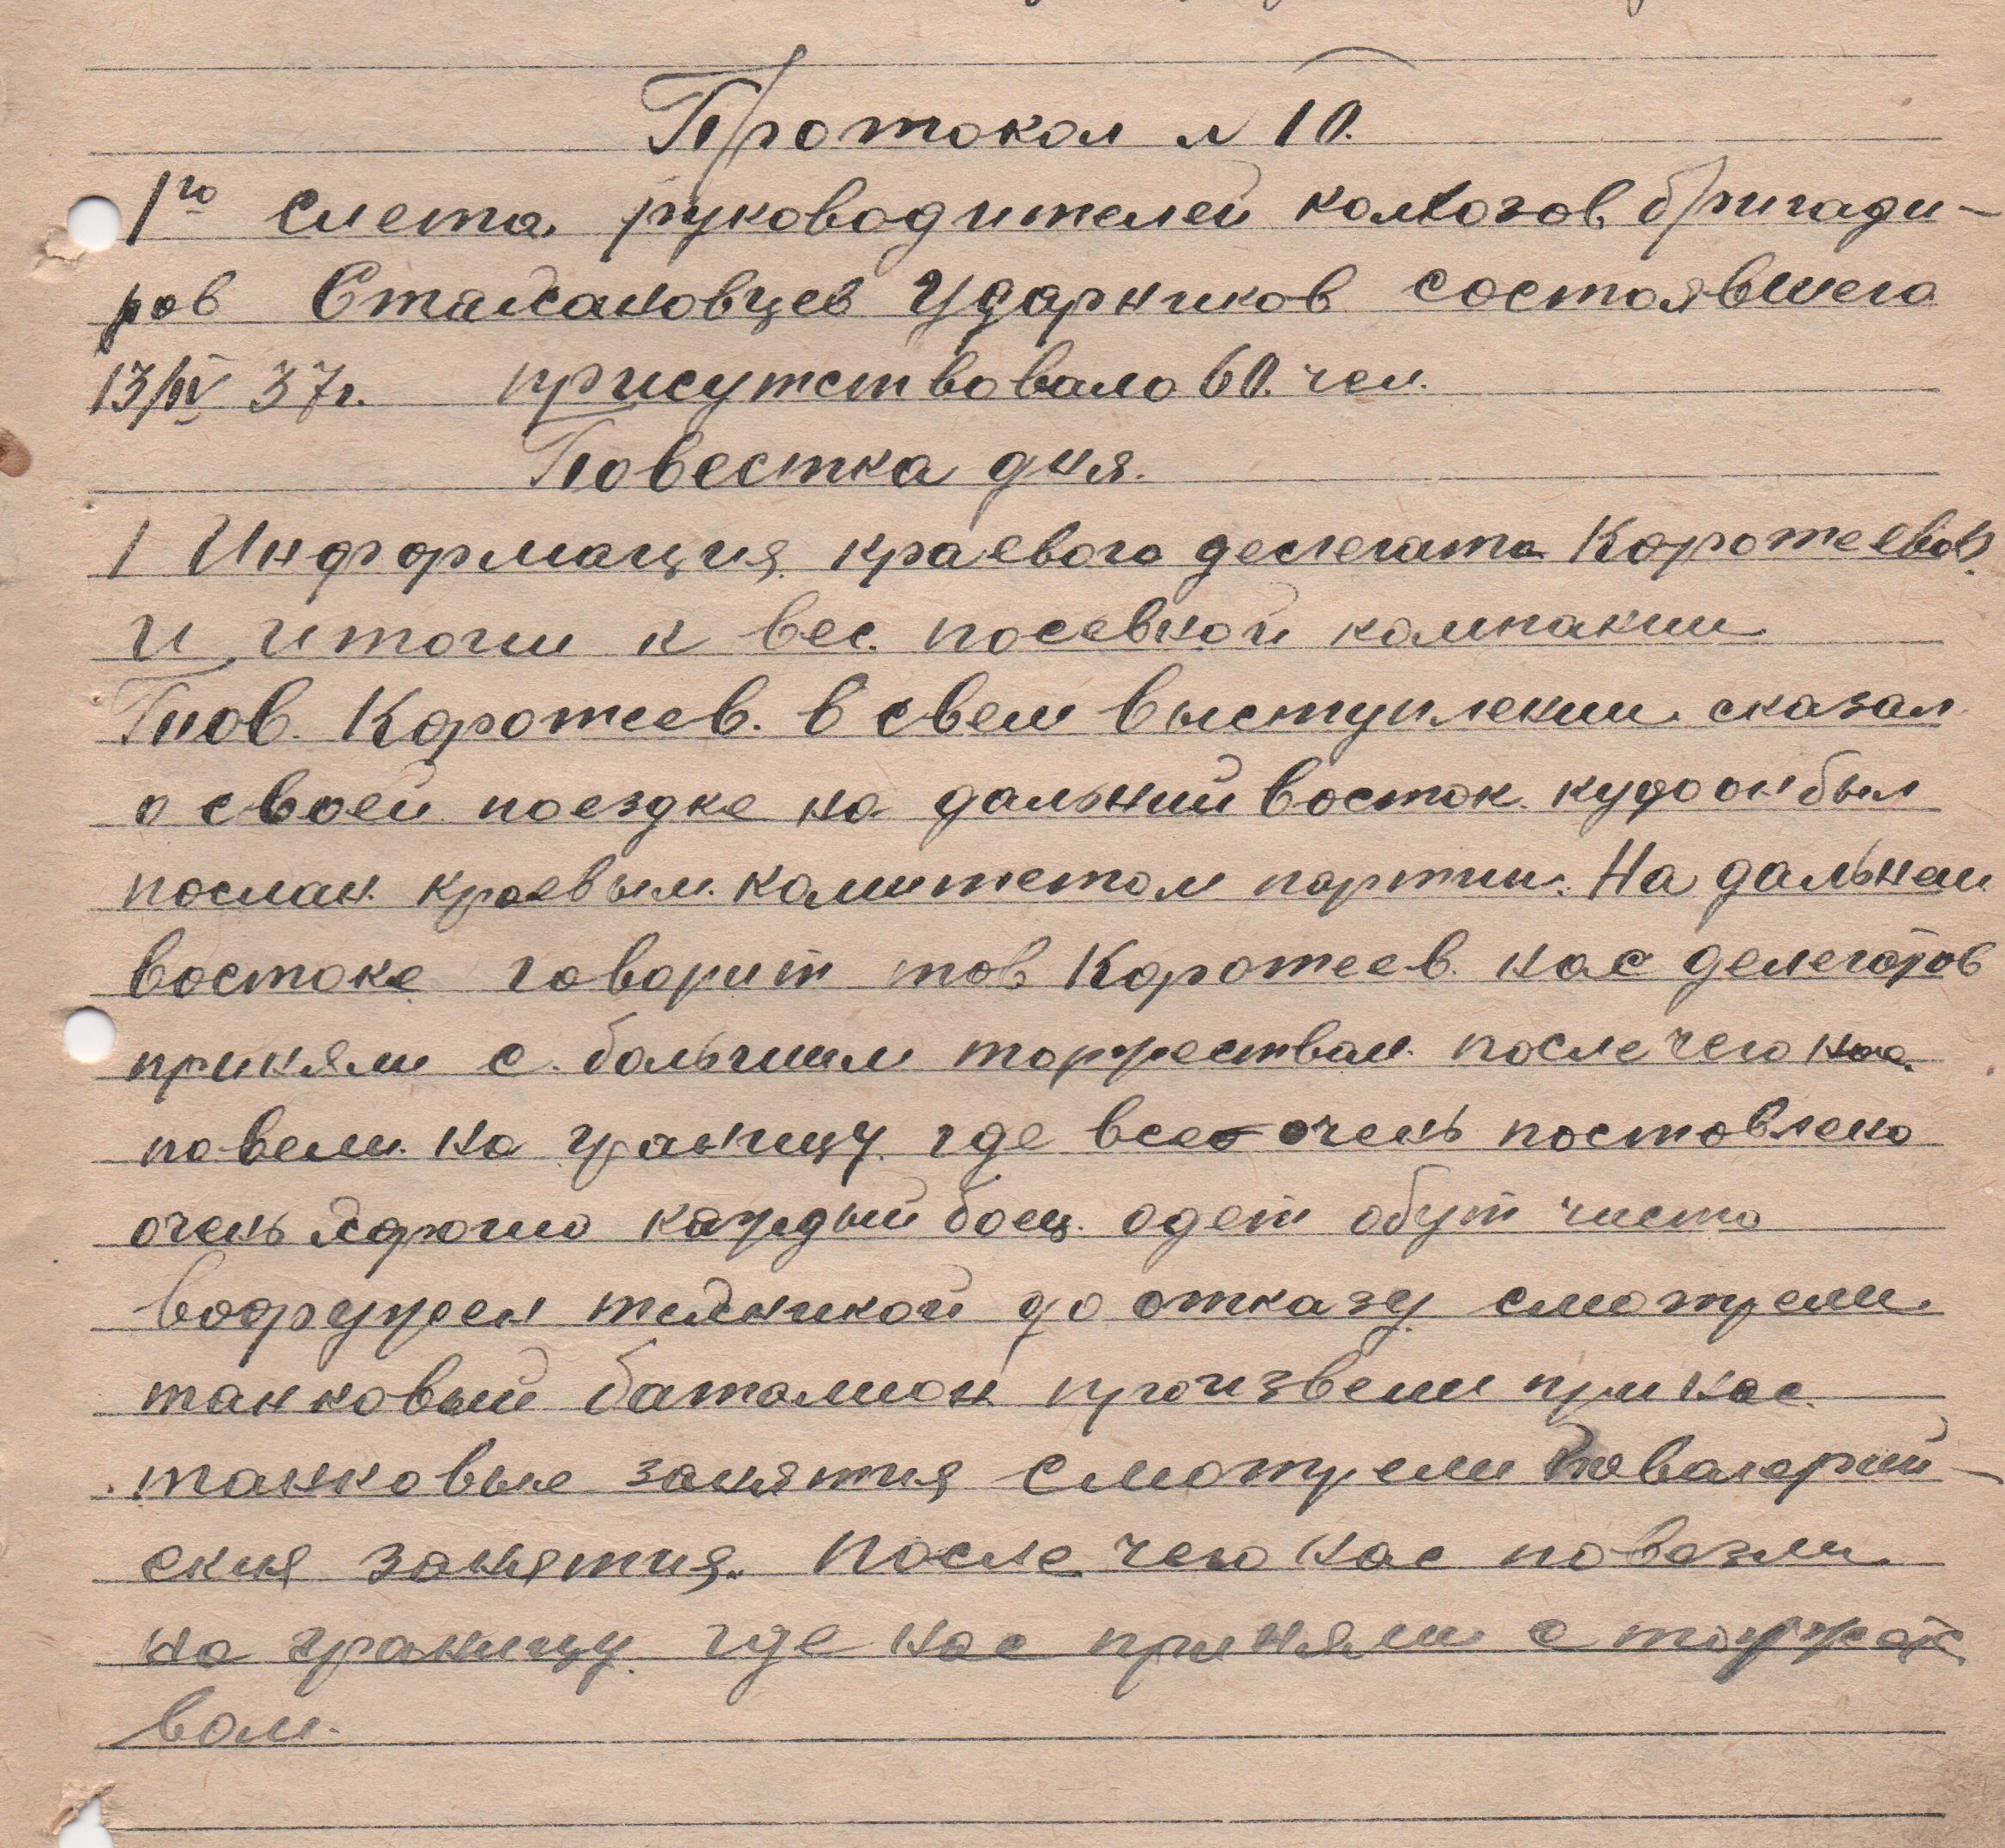 Протокол N 10.
1го слета руководителей колхозов бригади-
ров Стахановцев Ударников состоявшего
13/IV 37г. присутствовало 60. чел.
Повестка дня.
1 Информация краевого делегата Коротеева
и итоги к вес. посевной компании
Тов. Коротеев. в свем выступлении сказал
о своей поездке на дальний восток куда он был
послан краевым комитетом партии. На дальнем
востоке говорит тов Коротеев. нас делегатов
приняли с большим торжеством после чего нас
повели на границу где все очень поставлено
очень каждый боец одет обут чисто
вооружен техникой до отказу смотрели
танковый батальон произвели при нас
танковые занятия смотрели ковалерий-
ския занятия. После чего нас повезли
на границу где нас приняли с торжест
вом.